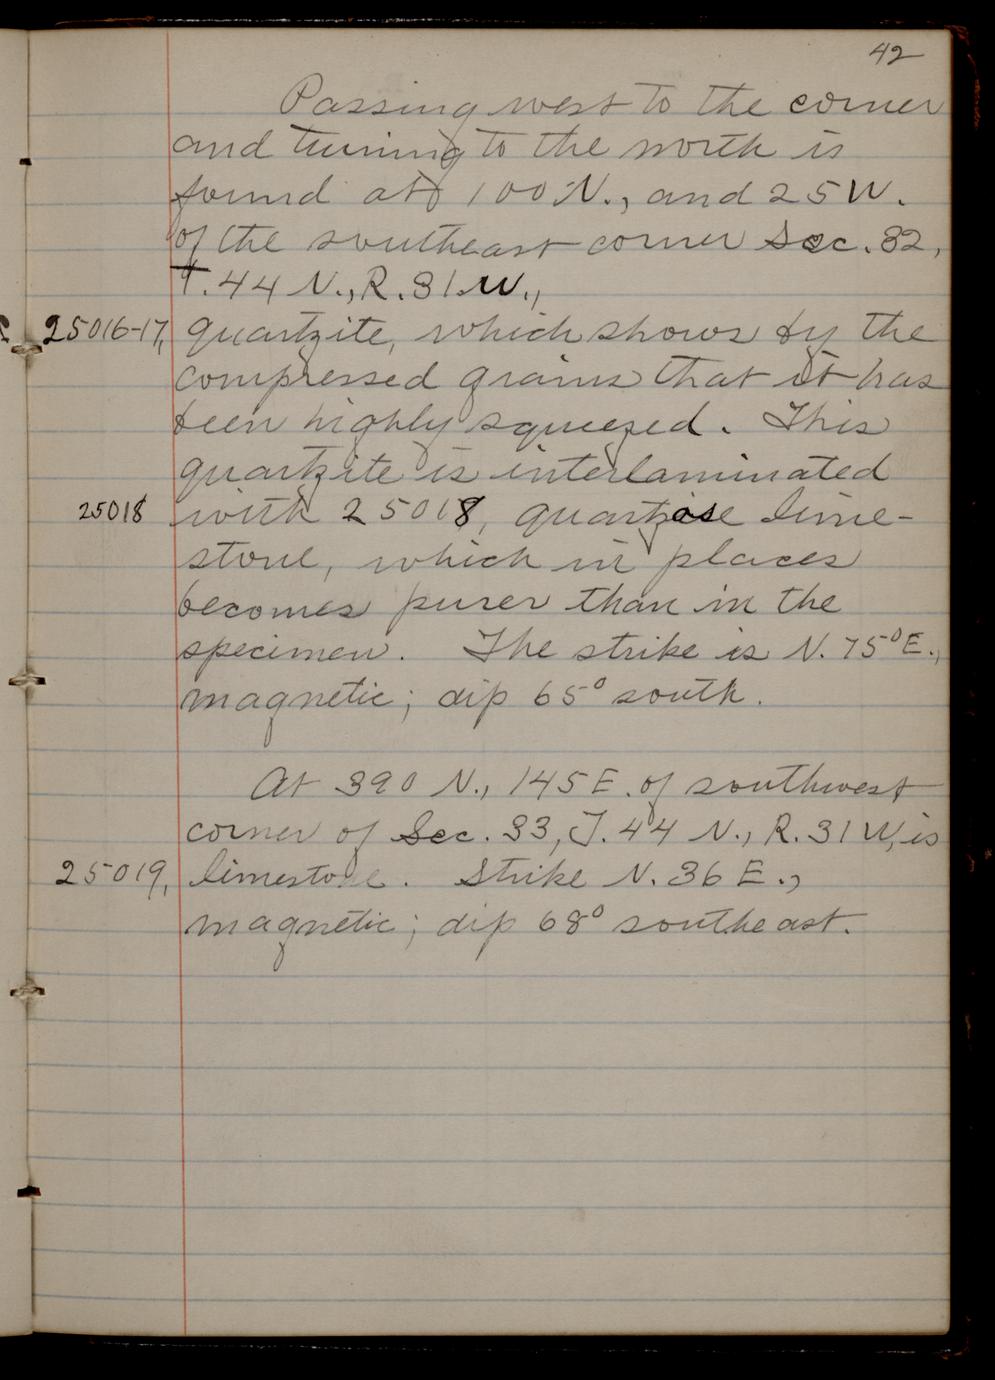 42
Passing west to the corner
and turning to the north is
found at 100 N., and 25 W.
of the southeast corner Sec. 32,
T. 44 N., R. 31 W.,
25016-17, quartzite, which shows by the
compressed grains that it has
been highly squeezed. This
quartzite is interlaminated
25018 with 25018, quartzose lime-
stone, which in places
becomes purer than in the
specimen. The strike is N. 75° E.,
magnetic; dip 65° south.
At 390 N., 145 E. of southwest
corner of Sec. 33, T. 44 N., R. 31 W, is
25019, limestone. Strike N. 36 E.,
magnetic; dip 68° southeast.